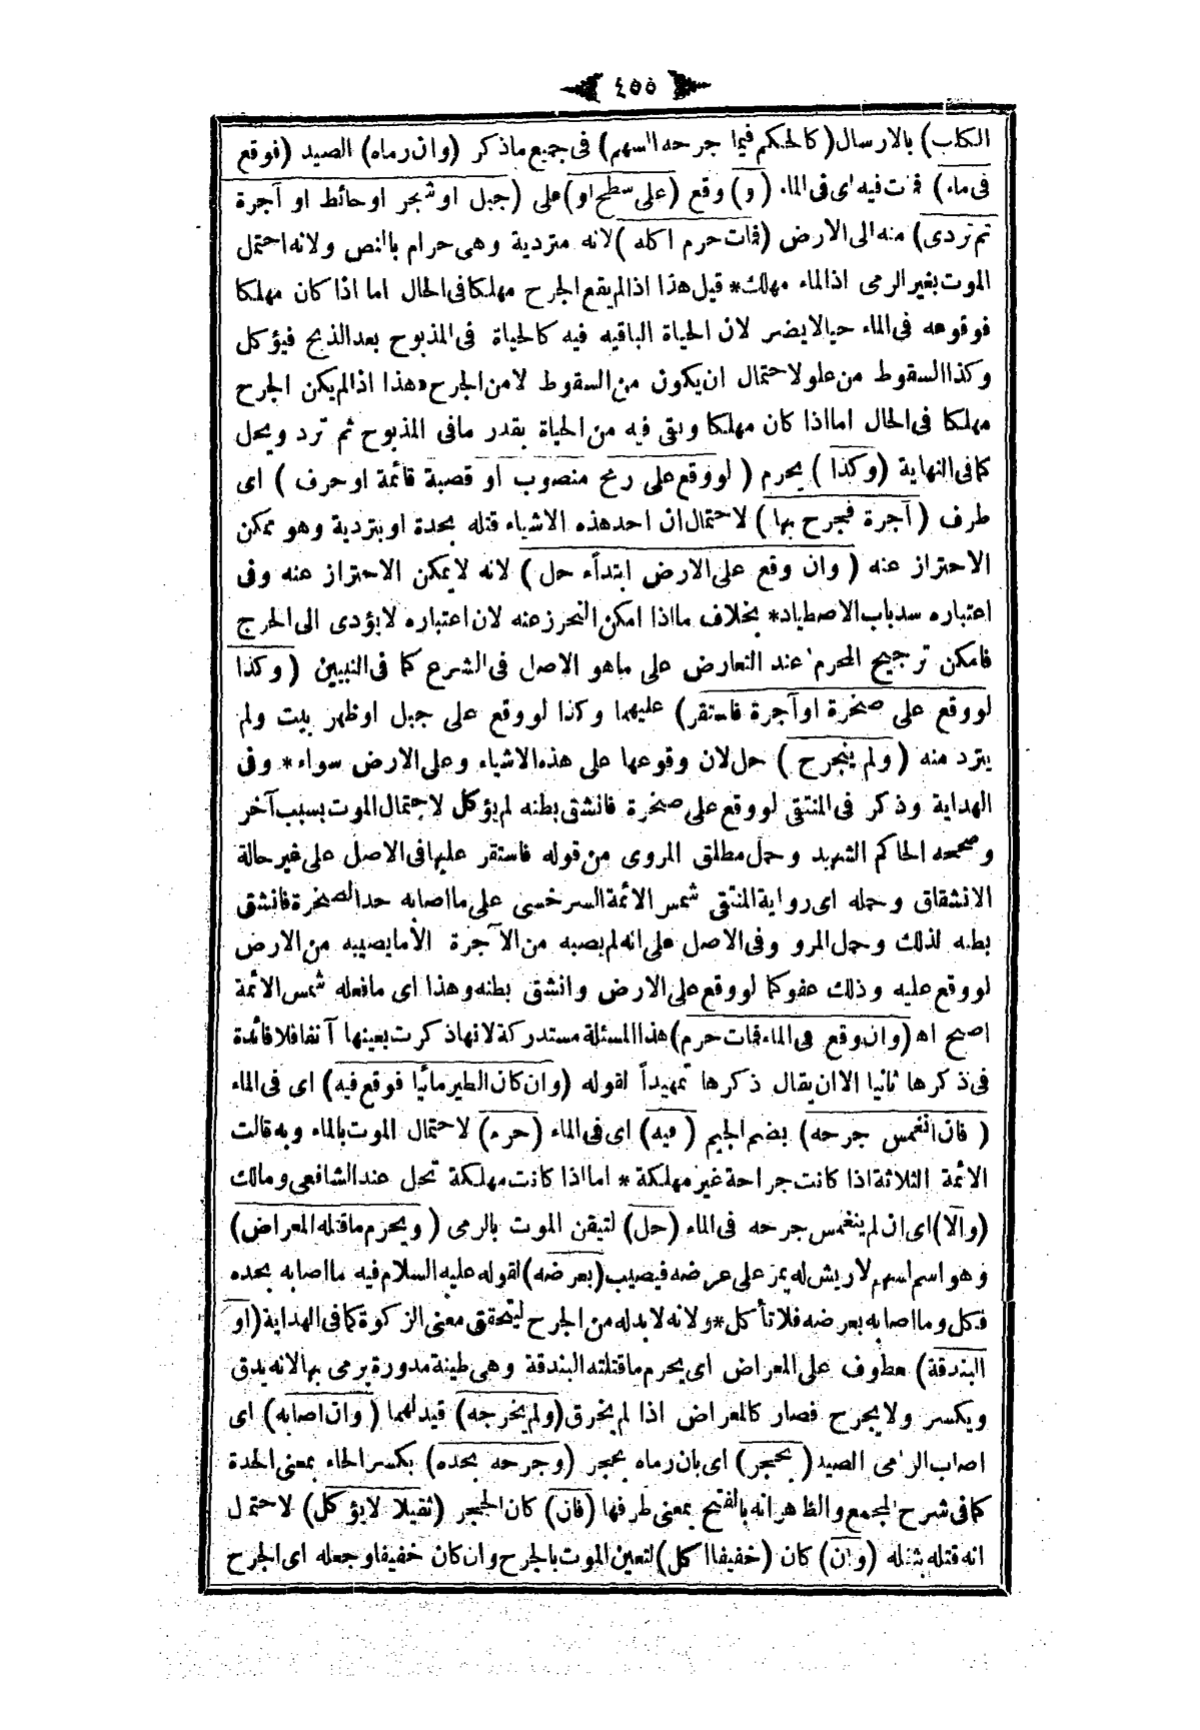 ٤٥٥
الكلب) بالارسال (كالحكم فيما جرحه السهم) فى جميع ماذكر (وان رماه) الصيد (فوقع
فى ماء) فمات فيه اى فى الماء (و) وقع (على سطح او) على (جبل او شجر او حائط او آجرة
ثم تردى) منه الى الارض (فمات حرم اكله) لانه متردية وهى حرام بالنص ولانه احتمل
الموت بغير الرمى اذ الماء مهلك* قيل هذا اذا لم يقع الجرح مهلكا فى الحال اما اذا كان مهلكا
فوقوعه فى الماء حيا لايضر لان الحياة الباقيه فيه كالحياة فى المذبوح بعد الذبح فيؤكل
وكذا السقوط من علو لاحتمال ان يكون من السقوط لا من الجرح وهذا اذا لم يكن الجرح
مهلكا فى الحال اما اذا كان مهلكا وبقى فيه من الحياة بقدر مافى المذبوح ثم ترد ويحل
كما فى النهاية (وكذا) يحرم (لو وقع على رمح منصوب او قصبة قائمة او حرف) اى
طرف (آجرة فجرح بها) لاحتمال ان احد هذه الاشياء قتله بحدة او بتردية وهو ممكن
الاحتراز عنه (وان وقع على الارض ابتداء حل) لانه لايمكن الاحتراز عنه وفى
اعتباره سد باب الاصطياد* بخلاف ما اذا امكن التحرز عنه لان اعتباره لايؤدى الى الحرج
فامكن ترجيح المحرم عند التعارض على ماهو الاصل فى الشرع كما فى التبيين (وكذا
لو وقع على صخرة او آجرة فاستقر) عليهما وكذا لو وقع على جبل او ظهر بيت ولم
يترد منه (ولم ينجرح) حل لان وقوعها على هذه الاشياء وعلى الارض سواء* وفى
الهداية وذكر فى المنتقى لو وقع على صخرة فانشق بطنه لم يؤكل لاحتمال الموت بسبب آخر
وصححه الحاكم الشهيد وحمل مطلق المروى من قوله فاستقر عليها فى الاصل على غير حالة
الانشقاق وحمله اى رواية المنتقى شمس الائمة السرخسى على ما اصابه حد الصخرة فانشق
بطنه لذلك وحمل المرو وفى الاصل على انه لم يصبه من الآجرة الا ما يصيبه من الارض
لو وقع عليه وذلك عفو كما لو وقع على الارض وانشق بطنه وهذا اى مافعله شمس الائمة
اصح اه (وان وقع فى الماء فمات حرم) هذا المسئلة مستدركة لانها ذكرت بعينها آنفا فلا فائدة
فى ذكرها ثانيا الا ان يقال ذكرها تمهيداً لقوله (وان كان الطير مائيا فوقع فيه) اى فى الماء
(فان انغمس جرحه) بضم الجيم (فيه) اى فى الماء (حرم) لاحتمال الموت بالماء وبه قالت
الائمة الثلاثة اذا كانت جراحة غير مهلكة * اما اذا كانت مهلكة تحل عند الشافعى ومالك
(والا) اى ان لم ينغمس جرحه فى الماء (حل) لتيقن الموت بالرمى (ويحرم ماقتله المعراض)
وهو اسم اسهم لاريش له يمر على عرضه فيصيب (بعرضه) لقوله عليه السلام فيه ما اصابه بحده
فكل وما اصابه بعرضه فلا تأكل* ولانه لابد له من الجرح ليتحقق معنى الزكوة كما فى الهداية (او
البندقة) معطوف على المعراض اى يحرم ماقتلته البندقة وهى طينة مدورة يرمى بها لانه يدق
ويكسر ولا يجرح فصار كالمعراض اذا لم يخرق (ولم يجرحه) قيد لهما (وان اصابه) اى
اصاب الرامى الصيد (بحجر) اى بان رماه بحجر (وجرحه بحده) بكسر الحاء بمعنى الحدة
كما فى شرح المجمع والظاهر انه بالفتح بمعنى طرفها (فان) كان الحجر (ثقيلا لايؤكل) لاحتمال
انه قتله بثقله (وان) كان (خفيفا اكل) لتعين الموت بالجرح وان كان خفيفا وجعله اى الجرح